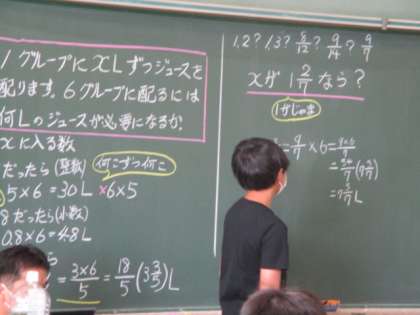 1グループにxLずつジュースを
配ります。6グループに配るには
何Lのジュースが必要になるか。
xに入る数
だったら(整数) 何こずつ何こ
5×6=30L ×6×5
8だったら(小数)
0.8×6=4.8L
ら
=3×6/5=18/5(3 3/5)L
1.2? 1.3? 8/12? 9/14? 9/7
xが1 2/7なら?
1がじゃま
=9/7×6=9×6/7
=54/7(7 5/7)
=7 5/7L